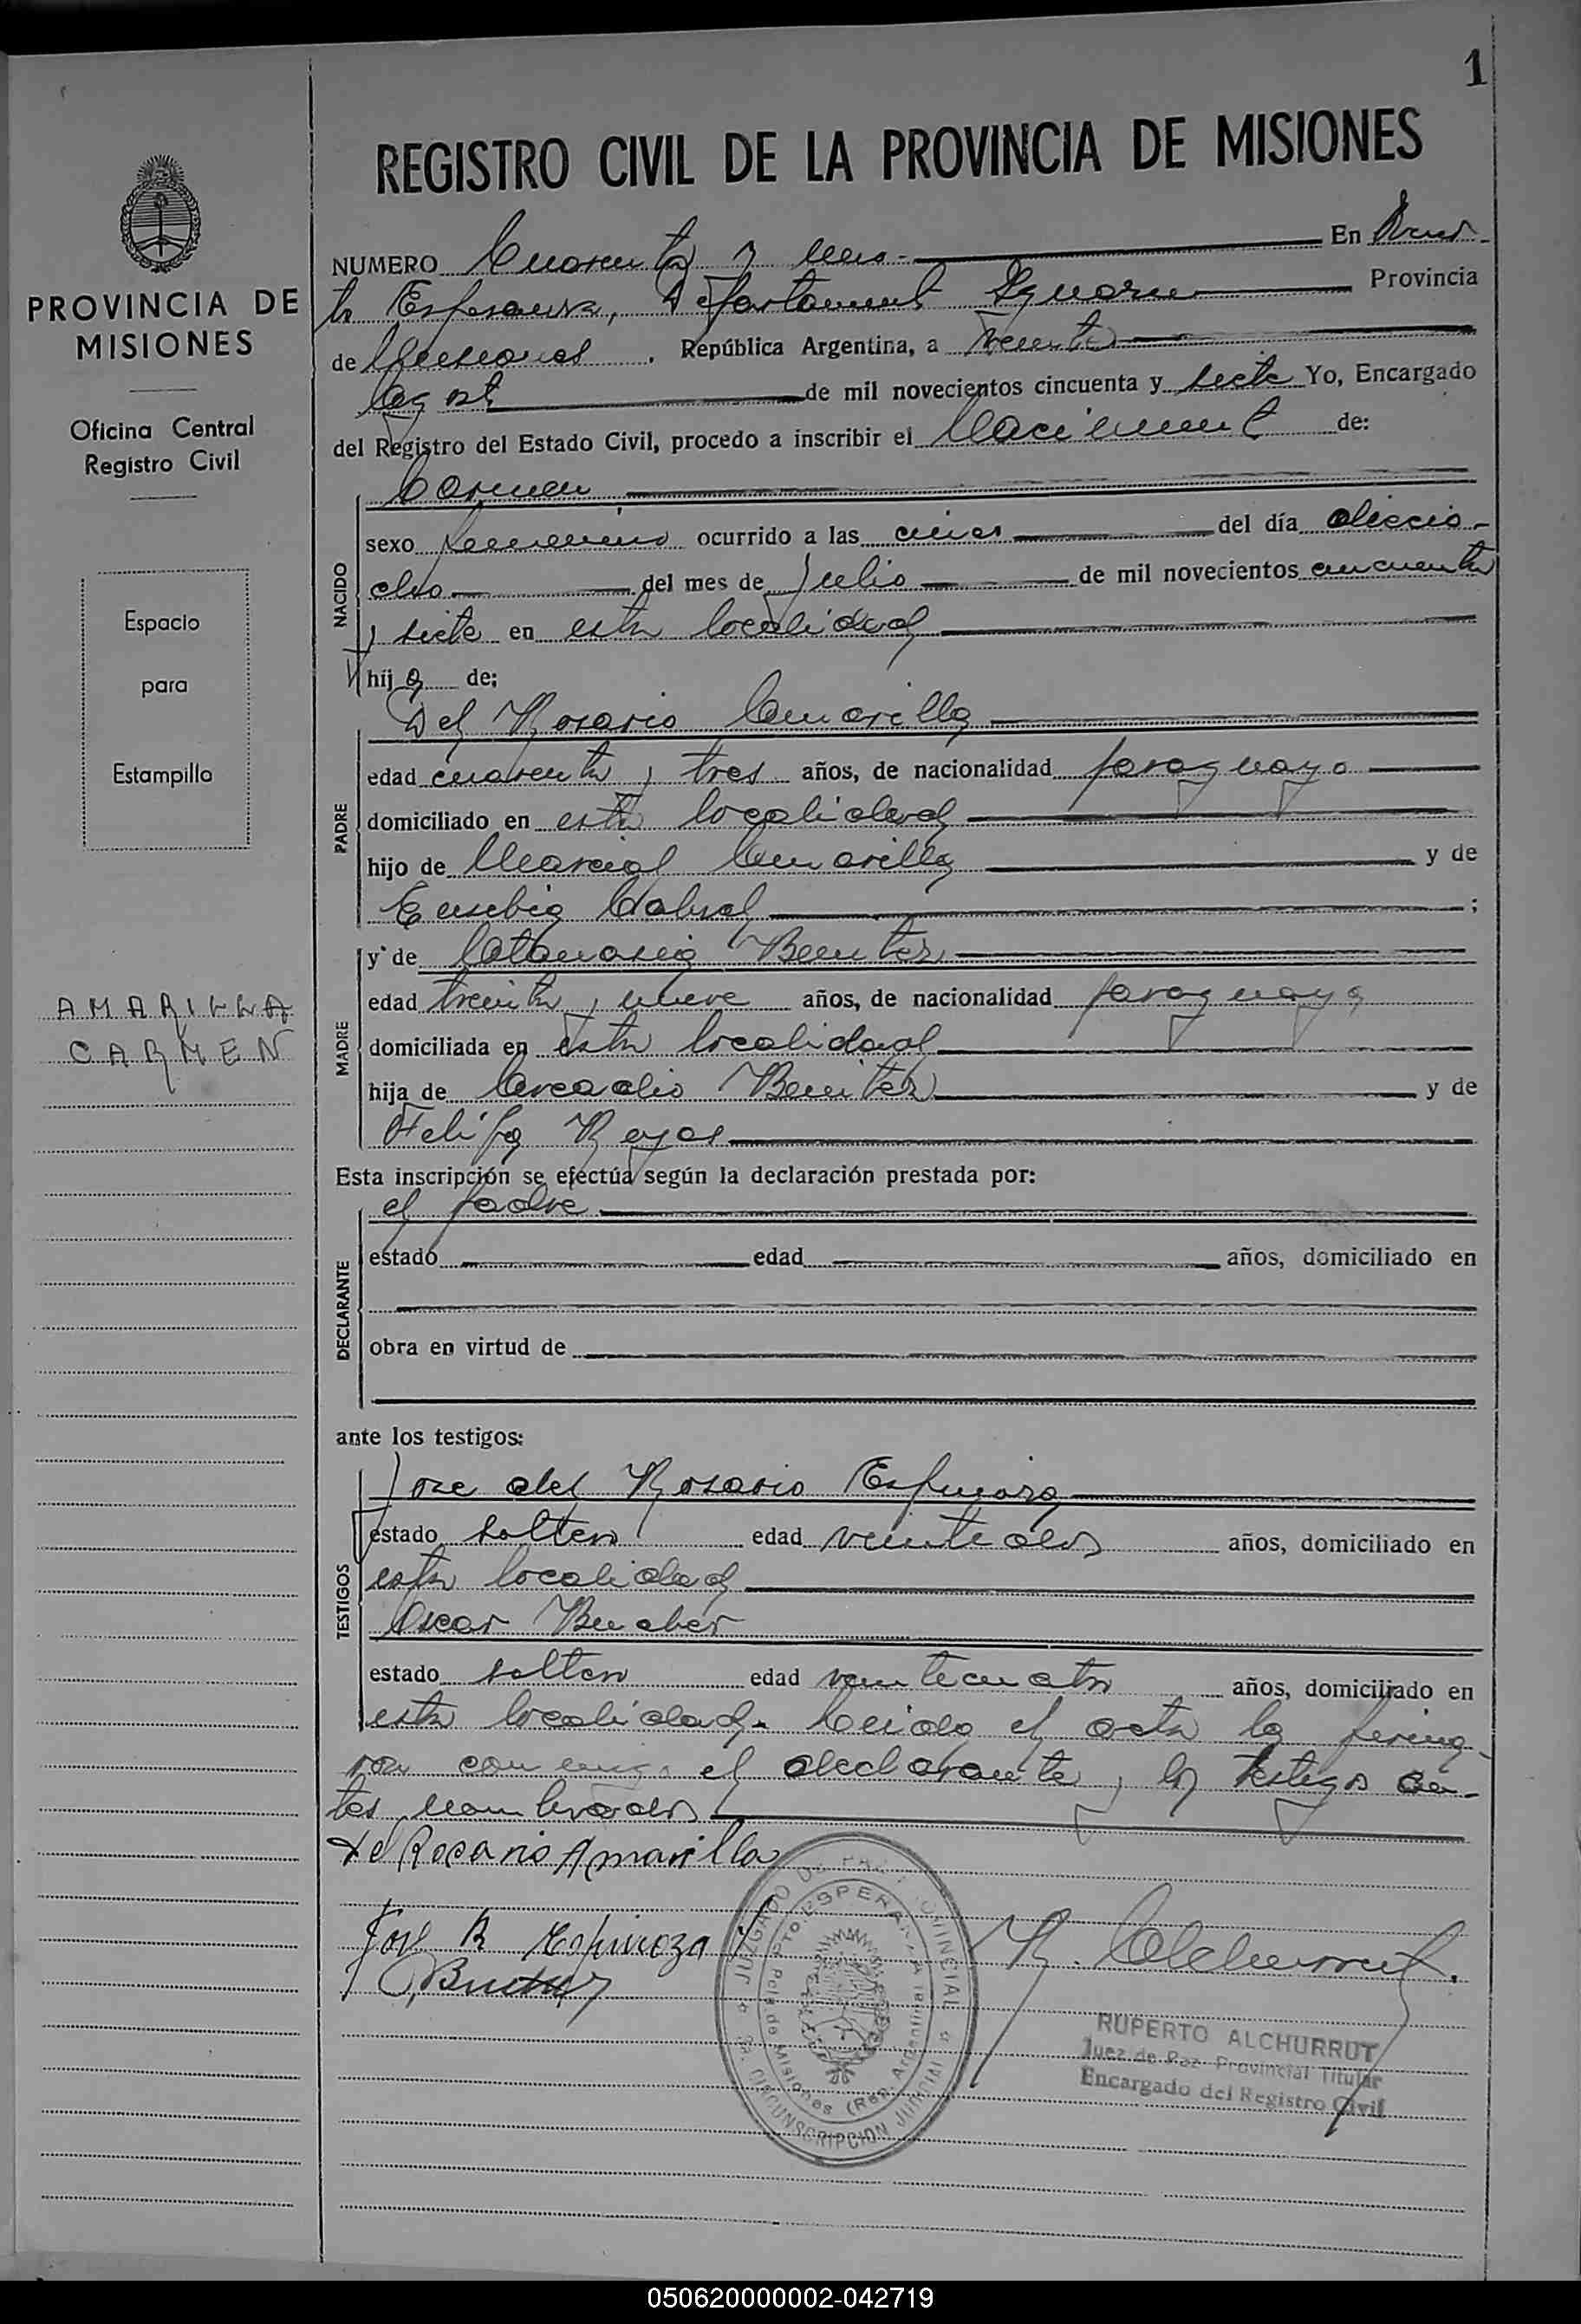 1
REGISTRO CIVIL DE LA PROVINCIA DE MISIONES
PROVINCIA DE
MISIONES
Oficina Central
Registro Civil
Espacio
para
Estampilla
AMARILLA
CARMEN
NUMERO Cuarenta y uno En Puer-
to Esperanza, Departamento Iguazu Provincia
de Misiones. República Argentina, a veinte
Agosto de mil novecientos cincuenta y siete Yo, Encargado
del Registro del Estado Civil, procedo a inscribir el Nacimiento de:
Carmen
NACIDO
sexo femenino ocurrido a las cinco del día diecio-
cho del mes de Julio de mil novecientos cincuenta
y siete en esta localidad
hija de:
Del Rosario Amarilla
PADRE
edad cuarenta y tres años, de nacionalidad paraguayo
domiciliado en esta localidad
hijo de Marcial Amarilla y de
Eusebia Cabral ;
MADRE
y de Atanasia Benitez
edad treinta y nueve años, de nacionalidad paraguaya
domiciliada en esta localidad
hija de Arcadio Benitez y de
Felipa Reyes
Esta inscripción se efectúa según la declaración prestada por:
el padre
DECLARANTE
estado edad años, domiciliado en
obra en virtud de
ante los testigos:
TESTIGOS
Jose del Rosario Espinoza
estado soltero edad veintidos años, domiciliado en
esta localidad
Oscar
estado soltero edad veinticuatro años, domiciliado en
esta localidad. Leida el acta la firma-
ron conmigo el declarante y los testigos an-
tes nombrados
del Rosario Amarilla
José R Espinoza
R. Alchurrut.
JUZGADO DE PAZ PROVINCIAL
PTO. ESPERANZA
Misiones (Rep. Argentina)
CIRCUNSCRIPCION JUDICIAL
RUPERTO ALCHURRUT
Juez de Paz Provincial Titular
Encargado del Registro Civil
050620000002-042719